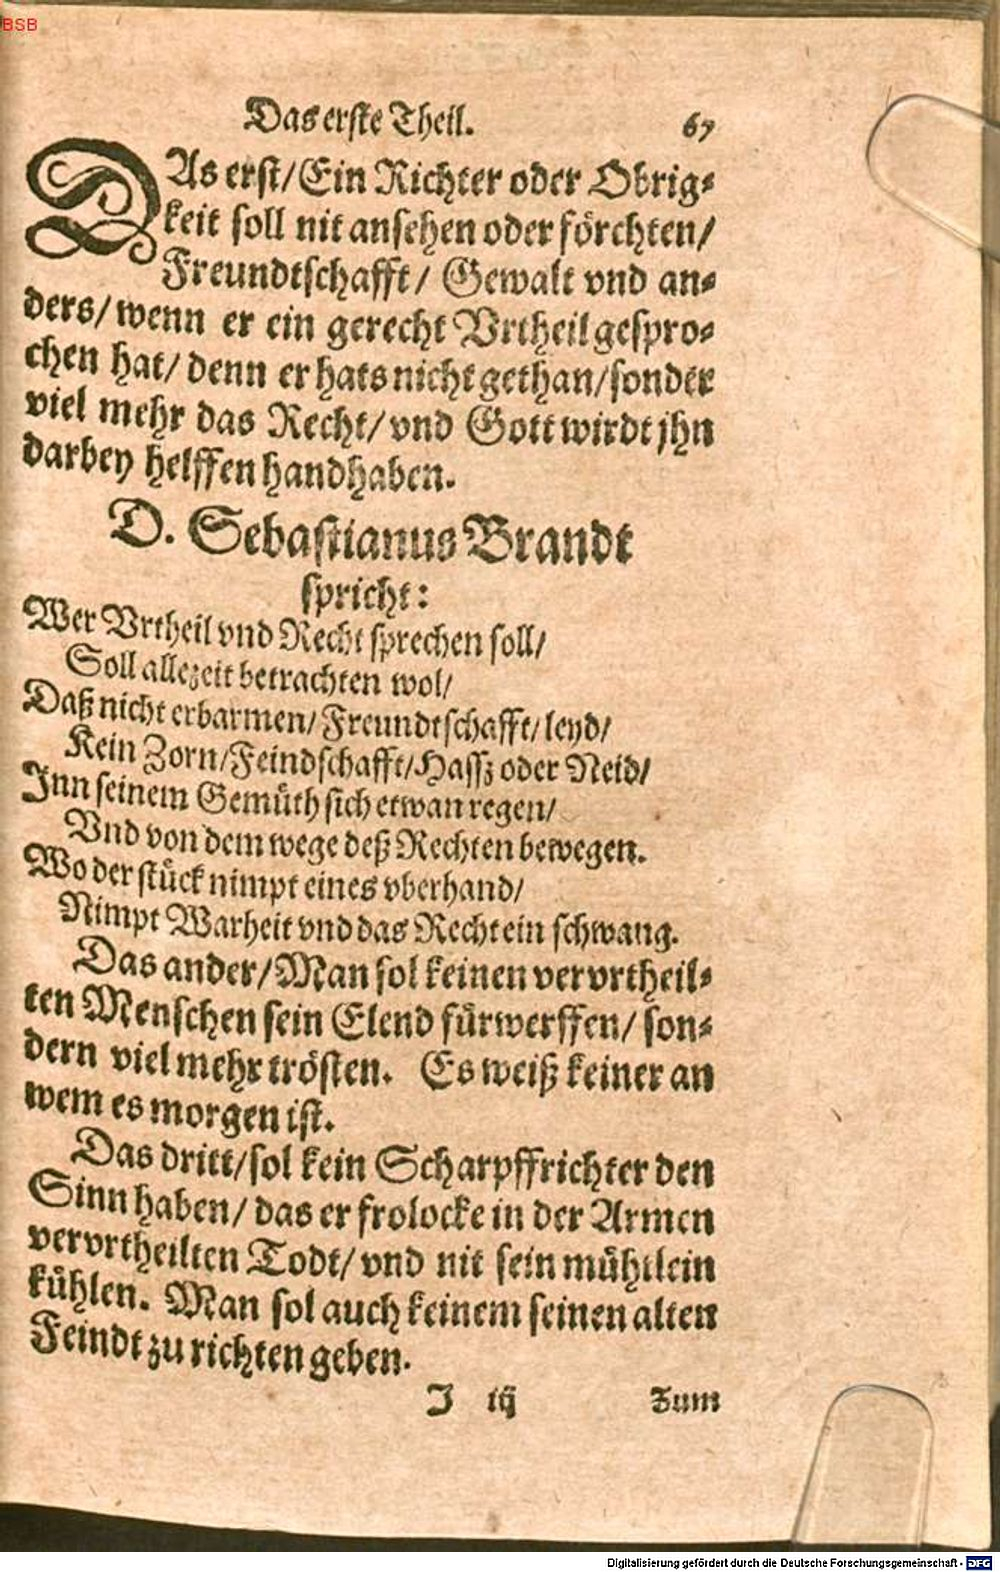 BSB
Das erste Theil. 67
DAs erst/ Ein Richter oder Obrig⸗
keit soll nit ansehen oder förchten/
Freundtschafft/ Gewalt vnd an⸗
ders/ wenn er ein gerecht Vrtheil gespro⸗
chen hat/ denn er hats nicht gethan/ sonder
viel mehr das Recht/ vnd Gott wirdt jhn
darbey helffen handhaben.
D. Sebastianus Brandt
spricht:
Wer Vrtheil vnd Recht sprechen soll/
Soll allezeit betrachten wol/
Daß nicht erbarmen/ Freundtschafft/ leyd/
Kein Zorn/ Feindschafft/ Hassz oder Neid/
Inn seinem Gemüth sich etwan regen/
Vnd von dem wege deß Rechten bewegen.
Wo der stück nimpt eines vberhand/
Nimpt Warheit vnd das Recht ein schwang.
Das ander/ Man sol keinen vervrtheil⸗
ten Menschen sein Elend fürwerffen/ son⸗
dern viel mehr trösten. Es weiß keiner an
wem es morgen ist.
Das dritt/ sol kein Scharpffrichter den
Sinn haben/ das er frolocke in der Armen
vervrtheilten Todt/ vnd nit sein mühtlein
kühlen. Man sol auch keinem seinen alten
Feindt zu richten geben.
I iij Zum
Digitalisierung gefördert durch die Deutsche Forschungsgemeinschaft - DFG